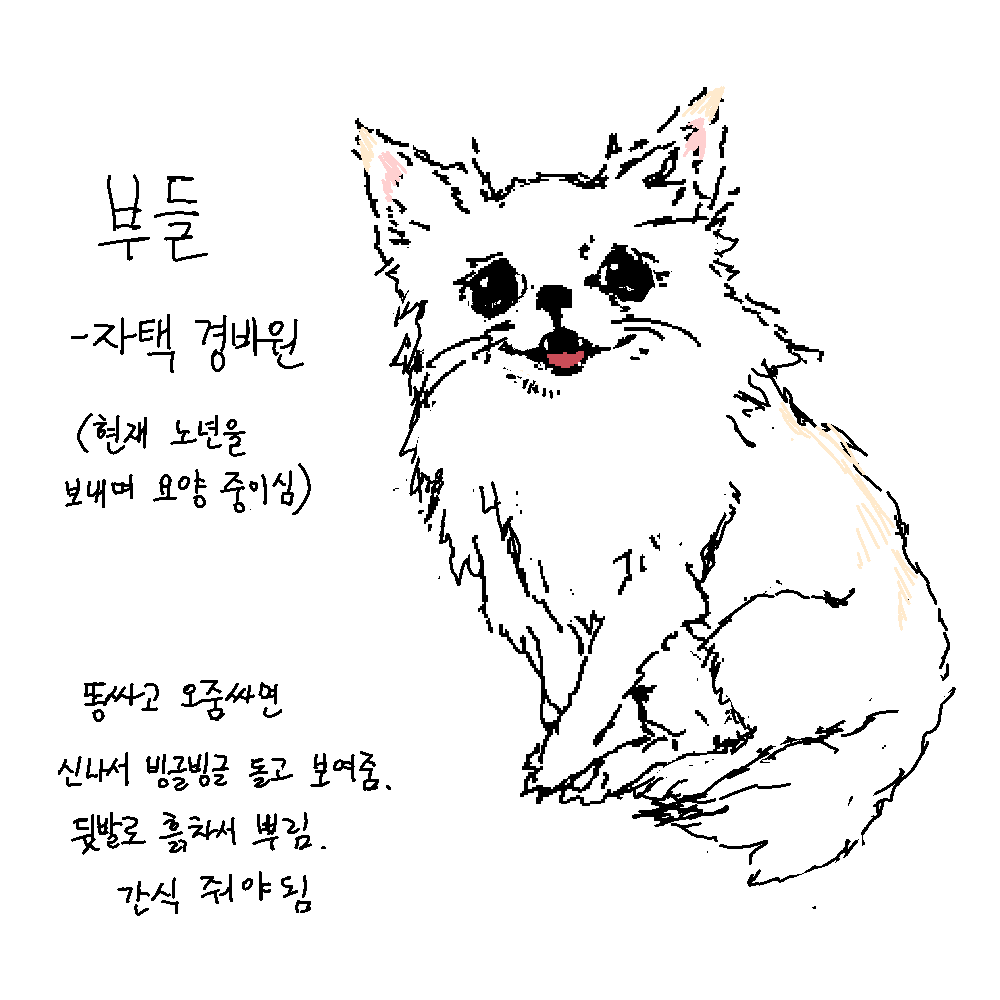 부들
-자택 경비원
(현재 노년을
보내며 요양 중이심)
똥싸고 오줌싸면
신나서 빙글빙글 돌고 보여줌.
뒷발로 흙차서 뿌림.
간식 줘야 됨